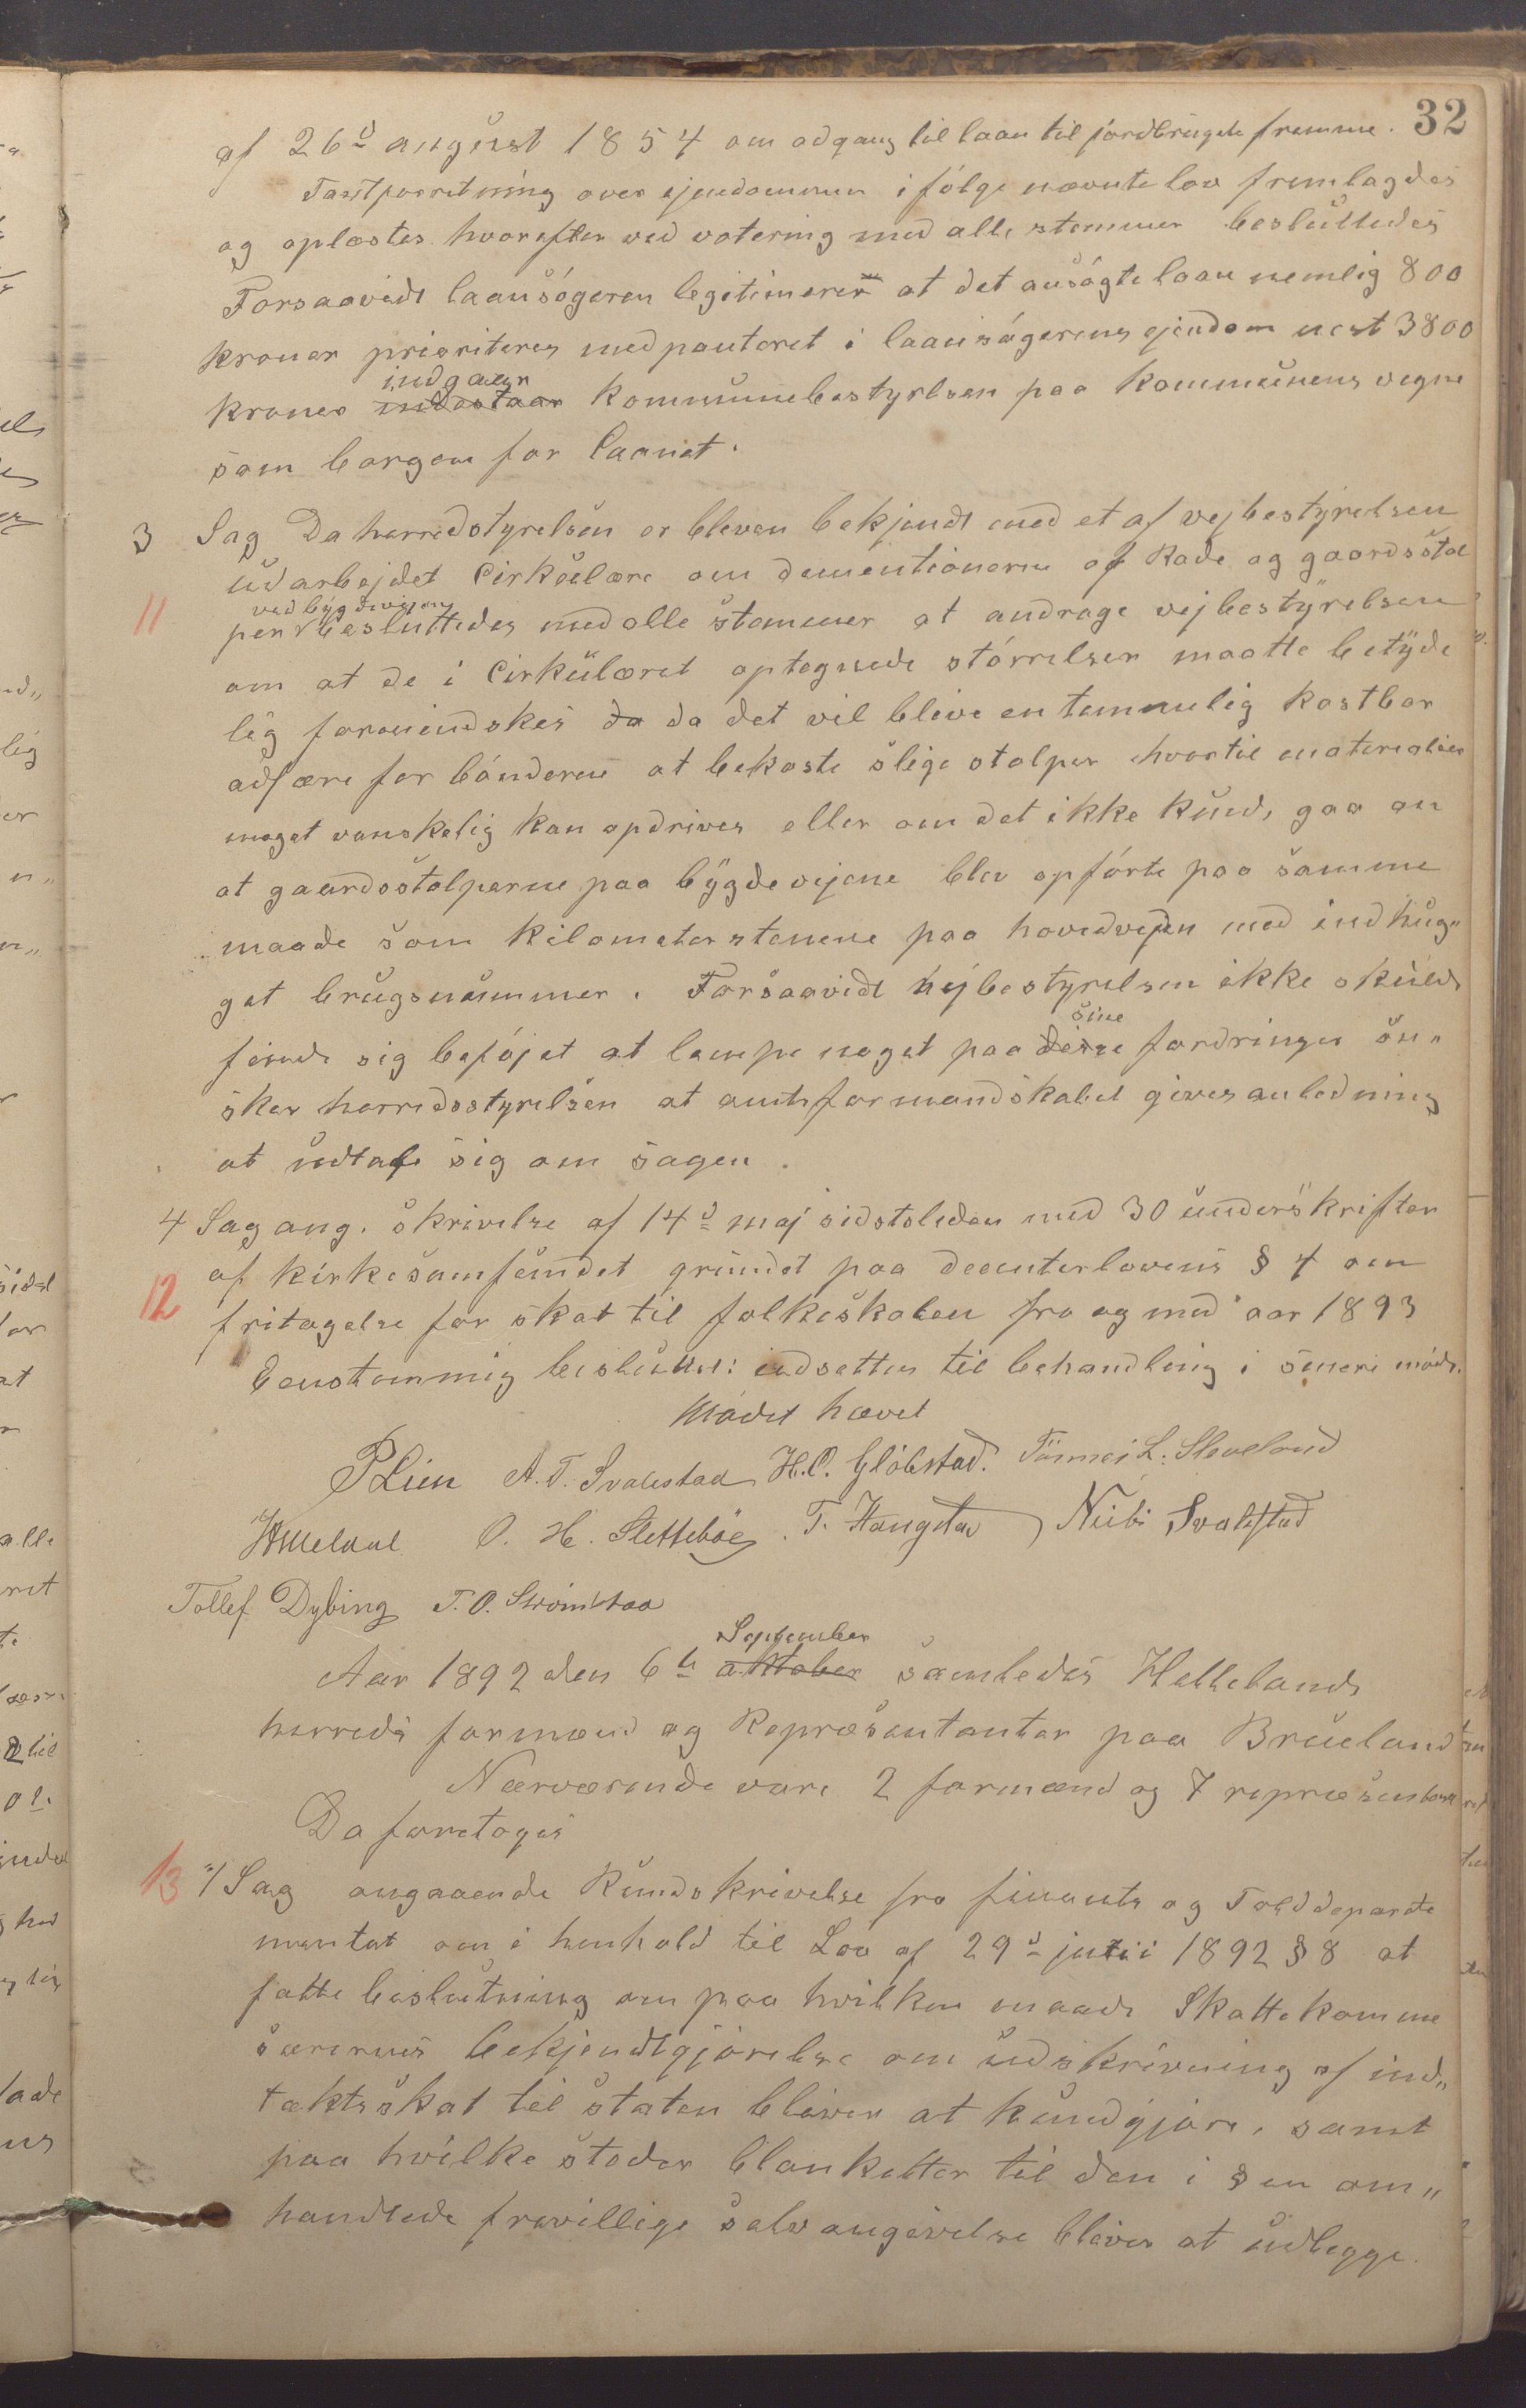 32
af 26d august 1854 om adgang til laan til jordbrugets fremme.
Taxtforretning over ejendommen ifölge nævnte lov fremlagdes
og oplæstes hvorefter ved votering med alle stemmer besluttedes
Forsaavidt laansögeren legitimerer at det ansögte laan nemlig 800
kroner prioriteres med panteret i laansögerens ejendom nest 3800
indgaaer
kroner indestaar kommunebestyrelsen paa kommunens vegne
som borgen for laanet.
3 Sag Da herredstyrelsen er bleven bekjendt med et af vejbestyrelsen
udarbejdet Cirkulære om dementionerne af Rode og gaardsstol
ved bygdevejen
11 per besluttedes med alle stemmer at andrage vejbestyrelsen
om at de i Cirkulæret optegnede störrelser maatte betyde
lig formindskes da da det vil blive en temmelig kostbar
adfære for bönderne at bekoste slige stolper hvortil materialier
meget vanskelig kan opdrives eller om det ikke kunde gaa an
at gaardsstolperne paa bygdevejene blev opförte paa samme
maade som kilometerstenene paa hovedvejen med indhug„
get brugsnummer. Forsaavidt vejbestyrelsen ikke skulde
sine
finde sig beföjet at lempe noget paa disse fordringer ön„
sker herredsstyrelsen at amtsformandskabet gives anledning
at udtale sig om sagen.
4 Sag ang. skrivelse af 14d maj sidstoleden med 30 underskrifter
af kirkesamfundet grundet paa decenterlovens § 4 om
12 fritagelse for skat til folkeskolen fra og med aar 1893
Eenstemmig besluttet: udsettes til behandling i senere möde.
Mödet hævet
P Lien A. T. Svalestad H.O. Glöbstad. Tönnes L. Sleveland
O. H. Sletteböe T. Haugstad Svalestad
Tollef Dybing T. O. Strömstad
September
Aar 1892 den 6te oktober samledes Hellelands
herreds formænd og Repræsentanter paa Brueland
Nærværende vare 2 formænd og 7 repræsentanter
Da foretoges
13 1/ Sag angaaende Rundskrivelse fra finants og Tolddeparte
mentet om i henhold til Lov af 29d juli 1892 § 8 at
fatte beslutning om paa hvilken maade Skattekomme
særernes bekjendtgjörelse om udskrivning af ind„
tæktsskat til staten bliver at kundgjöre, samt
paa hvilke steder blanketter til den i §en om„
handlede frivillige selvangivelse bliver at udlegge.